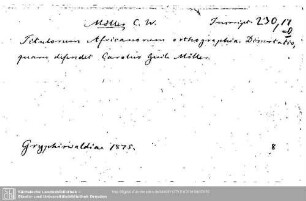 Möller, C. W. Inscript. 230, 11
Titulorum Africanorum orthographia. Dissertatio,
quam defendet Carolus Guil. Möller.
Gryphiswaldiae 1875. 8
Sächsische Landesbibliothek –
Staats- und Universitätsbibliothek Dresden